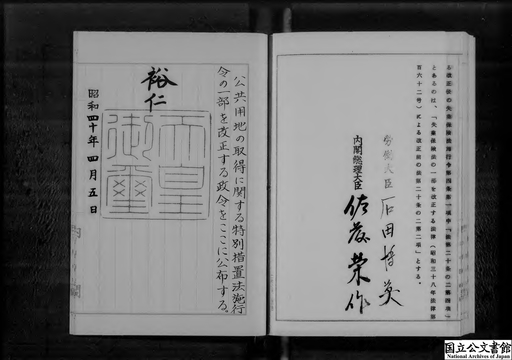 る改正後の失業保険法施行令第四条第一項中「法第二十条の二第四項」
とあるのは、「失業保険法の一部を改正する法律（昭和三十八年法律第
百六十二号）による改正前の法第二十条の二第二項」とする。
労働大臣 石田博英
内閣総理大臣 佐藤栄作
公共用地の取得に関する特別措置法施行
令の一部を改正する政令をここに公布する。
裕仁
天皇
御璽
昭和四十年四月五日
国立公文書館
National Archives of Japan